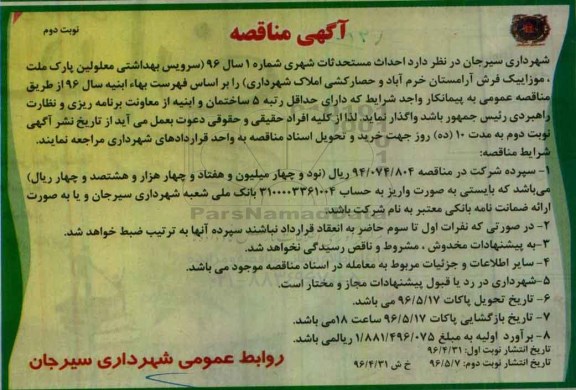 آگهی مناقصه
نوبت دوم
شهرداری سیرجان در نظر دارد احداث مستحدثات شهری شماره ۱ سال ۹۶ (سرویس بهداشتی معلولین پارک ملت
، موزاییک فرش آرامستان خرم آباد و حصارکشی املاک شهرداری) را بر اساس فهرست بهاء ابنیه سال ۹۶ از طریق
مناقصه عمومی به پیمانکار واجد شرایط که دارای حداقل رتبه ۵ ساختمان و ابنیه از معاونت برنامه ریزی و نظارت
راهبردی رئیس جمهور باشد واگذار نماید. لذا از کلیه افراد حقیقی و حقوقی دعوت بعمل می آید از تاریخ نشر آگهی
نوبت دوم به مدت ۱۰ (ده) روز جهت خرید و تحویل اسناد مناقصه به واحد قراردادهای شهرداری مراجعه نمایند.
شرایط مناقصه:
۱- سپرده شرکت در مناقصه ۹۴/۰۷۴/۸۰۴ ریال (نود و چهار میلیون و هفتاد و چهار هزار و هشتصد و چهار ریال)
می‌باشد که بایستی به صورت واریز به حساب ۳۱۰۰۰۰۳۳۶۱۰۰۴ بانک ملی شعبه شهرداری سیرجان و یا به صورت
ارائه ضمانت نامه بانکی معتبر به نام شرکت باشد.
۲- در صورتی که نفرات اول تا سوم حاضر به انعقاد قرارداد نباشند سپرده آنها به ترتیب ضبط خواهد شد.
۳-به پیشنهادات مخدوش ، مشروط و ناقص رسیدگی نخواهد شد.
۴- سایر اطلاعات و جزئیات مربوط به معامله در اسناد مناقصه موجود می باشد.
۵-شهرداری در رد یا قبول پیشنهادات مجاز و مختار است.
۶- تاریخ تحویل پاکات ۹۶/۵/۱۷ می باشد.
۷- تاریخ بازگشایی پاکات ۹۶/۵/۱۷ ساعت ۱۸می باشد.
۸- برآورد اولیه به مبلغ ۱/۸۸۱/۴۹۶/۰۷۵ ریالمی باشد.
تاریخ انتشار نوبت اول: ۹۶/۴/۳۱
تاریخ انتشار نوبت دوم: ۹۶/۵/۷ خ ش ۹۶/۴/۳۱
روابط عمومی شهرداری سیرجان
ParsNamadData